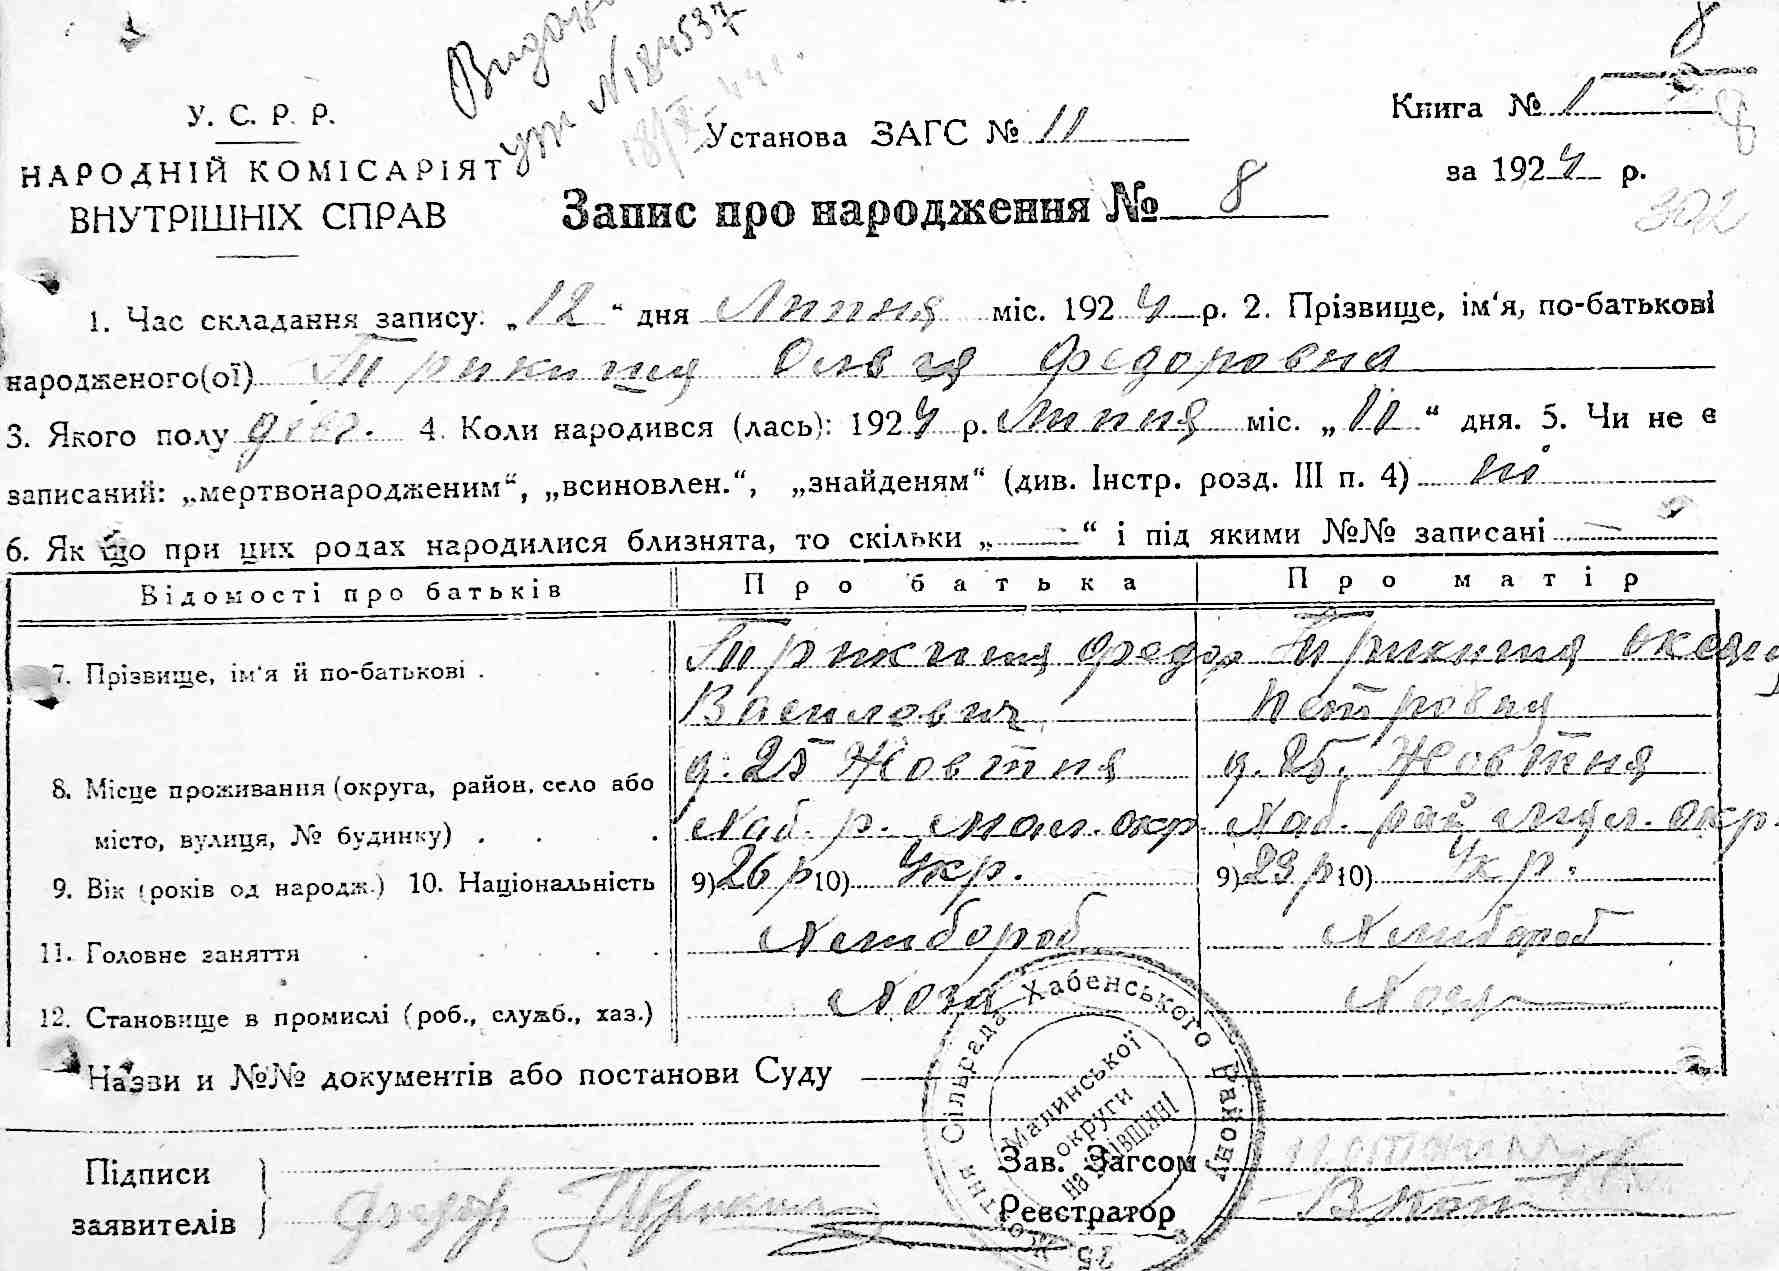 8
У. С. Р. Р.
НАРОДНІЙ КОМІСАРІЯТ
ВНУТРІШНІХ СПРАВ
№184537
Установа ЗАГС № 11
Книга № 1
за 1924 р.
302
Запис про народження № 8
1. Час складання запису: „12“ дня Липня міс. 1924 р. 2. Прізвище, ім‘я, по-батькові
народженого(ої) Трикиша Ольга Федоровна
3. Якого полу дівч. 4. Коли народився (лась): 1924 р. Липня міс. „11“ дня. 5. Чи не є
записаний: „мертвонародженим“, „всиновлен.“, „знайденям“ (див. Інстр. розд. III п. 4) ні
6. Як що при цих родах народилися близнята, то скільки „ — “ і під якими №№ записані —
Відомості про батьків Про батька Про матір
7. Прізвище, ім‘я й по-батькові . Трикиша Федор Василович Трикиша Оксана Петровна
8. Місце проживання (округа, район, село або
місто, вулиця, № будинку) . 25 Жовтня Хаб. р. Мал. окр. 25. Жовтня Хаб. рай Мал. окр.
9. Вік (років од народж.) 10. Національність 9) 26 р 10) Укр. 9) 23 р 10) Укр.
11. Головне заняття Хлібороб Хлібороб
12. Становище в промислі (роб., служб., хаз.) Хозя
Назви и №№ документів або постанови Суду
Підписи
заявителів
Федор Трикиша
Зав. Загсом
Реєстратор
Жовтня Сільрада Хабенського Району
Малинської
округи
на Київщині
25